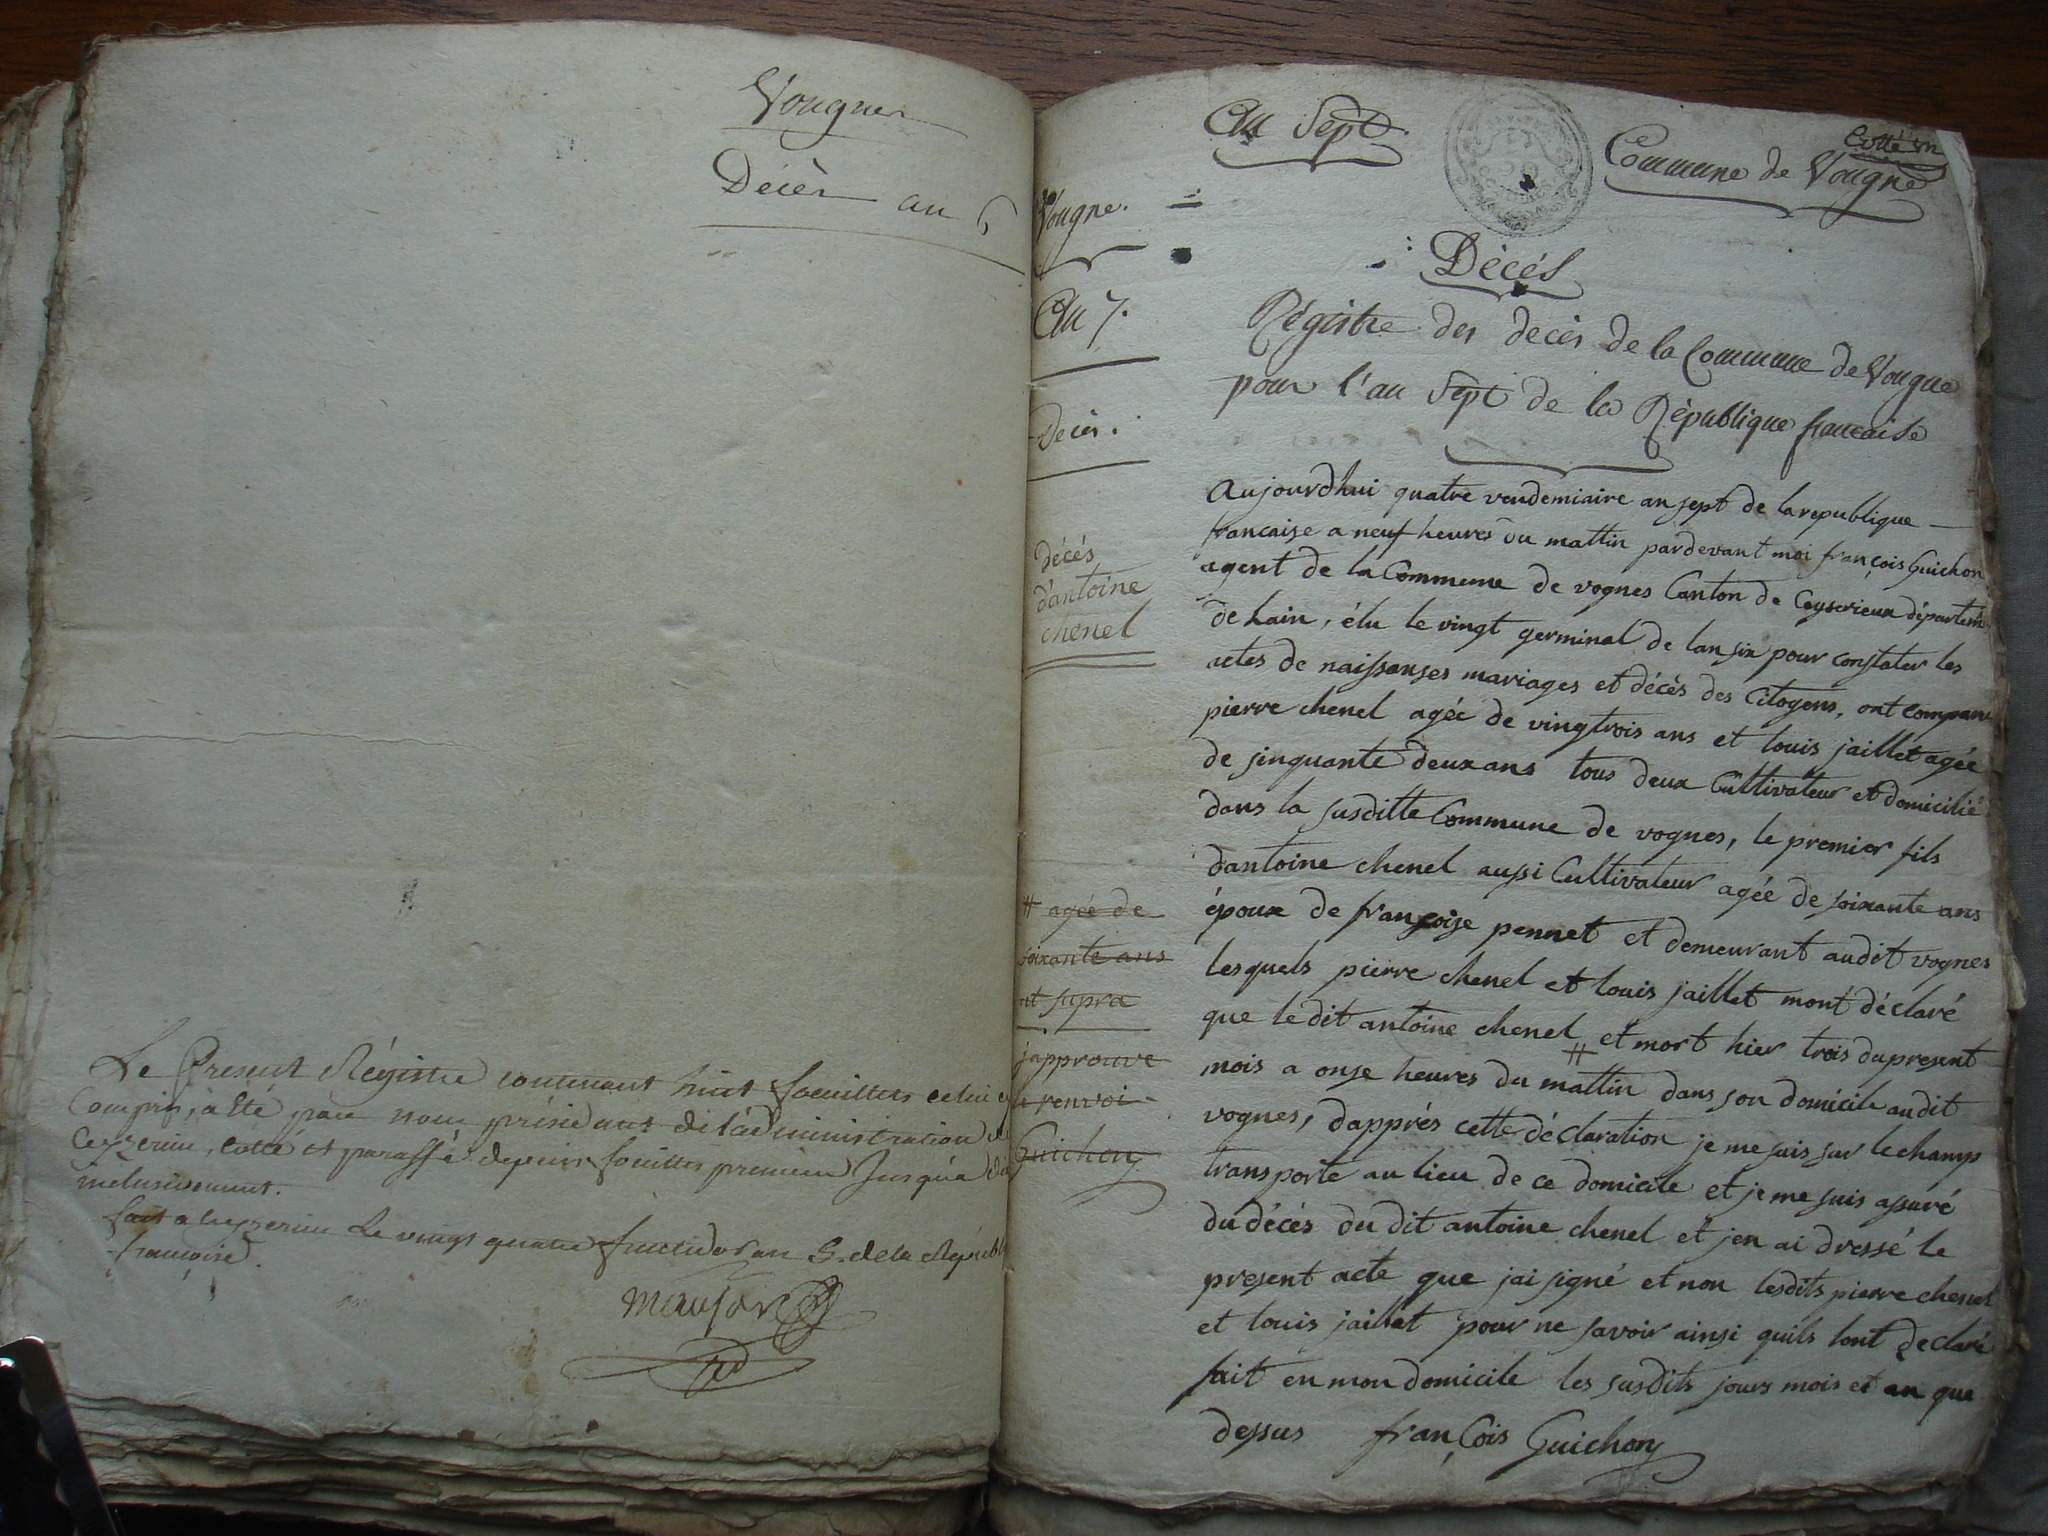 Vougnes
Décès an 6
Le Present Régistre contenant huit feuillets celui cy
Compris, a été par nous président de l'administration de
Ceyzerieu, cotté et paraffé depuis feuillet premier Jusqu'a
inclusivement.
fait a Ceyzerieu Le vingt quatre fructidor an 5. de la Républ
françoise.
An Sept
Cotté un
Commune de Vougne
Vougne.
An 7.
Décès.
Décés
Régistre des decès de la Commune de Vougne
pour l'an Sept de la République francaise
décés
d'antoine
chenel
Aujourdhui quatre vendemiaire an sept de la republique
francaise a neuf heures du mattin pardevant moi françois Guichon
agent de la Commune de vognes Canton de Ceyserieux départem
de lain, élu le vingt germinal de lan six pour constater les
actes de naissanses mariages et décès des Citoyens, ont comparu
pierre chenel agée de vingtrois ans et louis jaillet agée
de sinquante deux ans tous deux Cultivateur et domicilié
dans la susditte Commune de vognes, le premier fils
dantoine chenel aussi Cultivateur agée de soixante ans
époux de françoise pennet et demeurant audit vognes
lesquels pierre chenel et louis jaillet mont déclaré
que ledit antoine chenel et mort hier trois du present
mois a onse heures du mattin # dans son domicile audit
vognes, dapprés cette déclaration je me suis sur le champ
transporté au lieu de ce domicile et je me suis assuré
du décés du dit antoine chenel et jen ai dressé le
present acte que jai signé et non lesdits pierre chenel
et louis jaillet pour ne savoir ainsi quils lont declaré
fait en mon domicile les susdits jours mois et an que
dessus françois Guichon
# agée de
soixante ans
ut supra
japprouve
le renvoi
Guichon